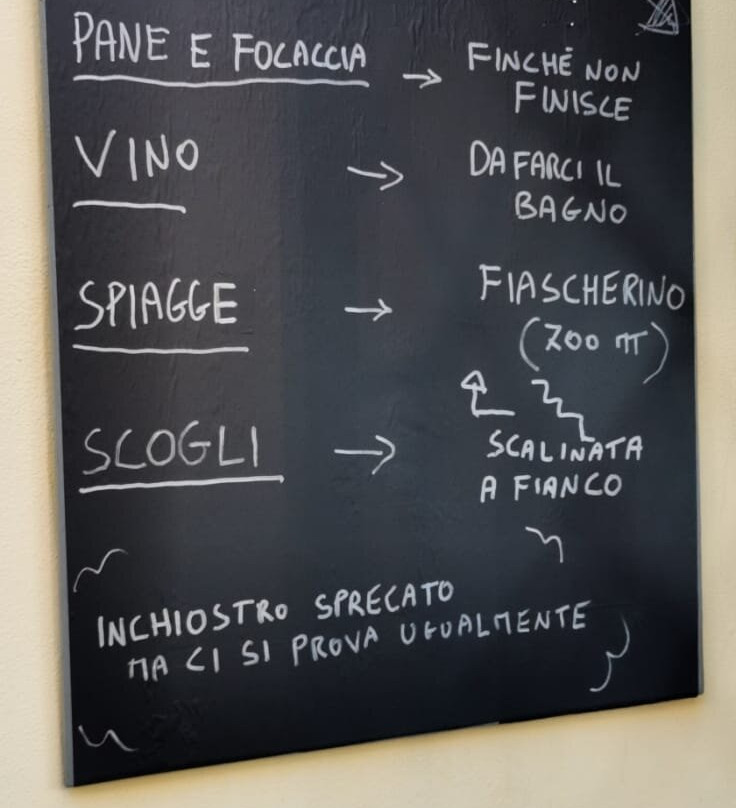 PANE E FOCACCIA → FINCHÉ NON
FINISCE
VINO → DA FARCI IL
BAGNO
SPIAGGE → FIASCHERINO
(700 m)
SCOGLI → SCALINATA
A FIANCO
INCHIOSTRO SPRECATO
MA CI SI PROVA UGUALMENTE